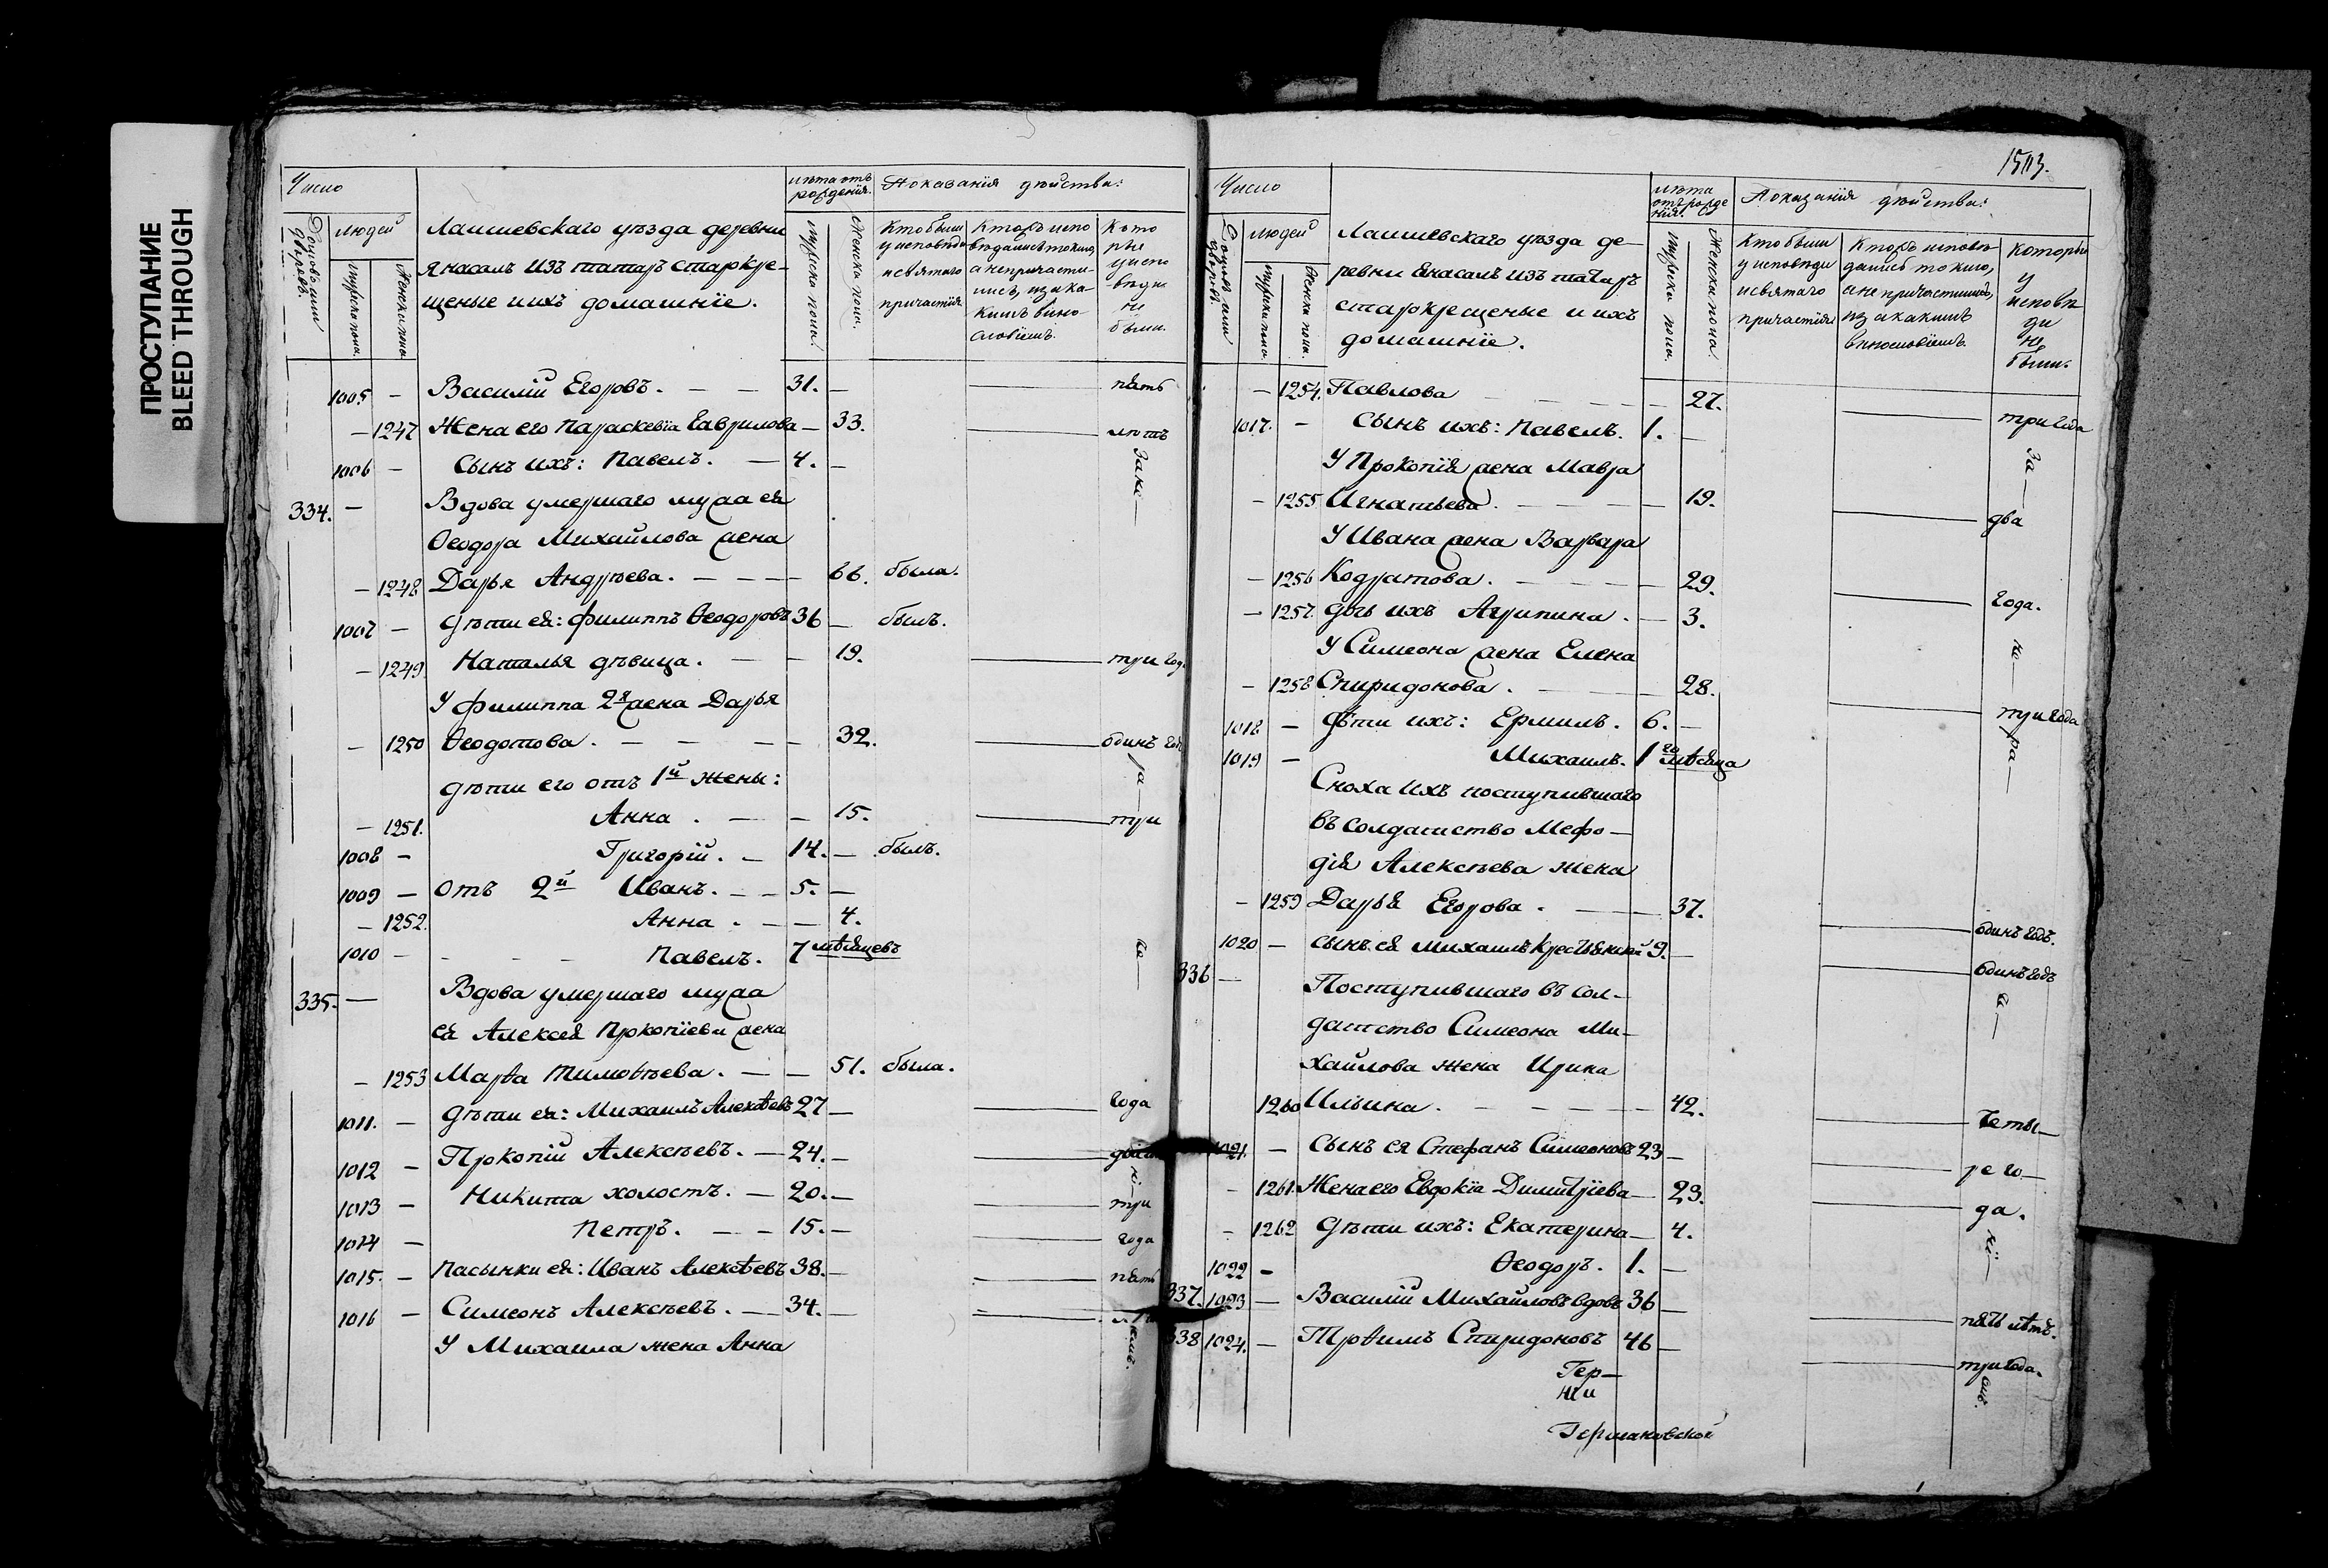 ПРОСТУПАНИЕ
BLEED THROUGH
Число
лѣта отъ рожденія.
Показанія дѣйства:
Домовъ или дворовъ.
людей
мужска пола.
женска пола.
Лаишевскаго уѣзда деревни
Янасалъ изъ татаръ старкре-
щеные и ихъ домашніе.
мужска пола.
женска пола.
Кто были
у исповѣди
и святаго
причастія
Кторъ испо
вѣдались токмо,
а не причасти-
лись, и за ка-
кимъ вино-
словіемъ.
Кото
рые
у испо
вѣди
не
были.
1005 — Василій Егоровъ. — — 31. — пять
— 1247 Жена его Параскевіа Гаврилова — 33. лѣтъ
1006 — Сынъ ихъ: Павелъ. — 4. —
334. — Вдова умершаго мужа ея
Ѳеодора Михайлова жена
— 1248 Дарья Андрѣева. — — — 66. была.
1007 — Дѣти ея: Филиппъ Ѳеодоровъ 36 — былъ.
— 1249 Наталья дѣвица. — — 19. три год.
У Филиппа 2я жена Дарья
— 1250 Ѳеодотова. — — — — 32. одинъ год
дѣти его отъ 1й жены:
— 1251. Анна . — — 15. три
1008 — Григорій. — 14. — былъ.
1009 — отъ 2й Иванъ. — — 5. —
— 1252. Анна . — — 4.
1010 — — — — Павелъ. 7 мѣсяцевъ
335. — Вдова умершаго мужа
ея Алексея Прокопіева жена
— 1253 Марѳа Тимоѳѣева. — — 51. была.
1011. — Дѣти ея: Михаилъ Алексѣевъ 27 — года
1012 — Прокопій Алексѣевъ. — 24. —
1013 — Никита холостъ. — 20. — три
1014 — Петръ. — — 15. — года
1015. — Пасынки ея: Иванъ Алексѣевъ 38. — пять
1016 — Симеонъ Алексѣевъ. — 34. —
У Михаила жена Анна
1503.
Число
лѣта
отъ рожде
нія.
Показанія дѣйства:
Домовъ или дворовъ.
людей
мужска пола.
женска пола.
Лаишевскаго уѣзда де-
ревни Янасалъ изъ татаръ
старокрещеные и ихъ
домашніе.
мужска пола.
женска пола.
Кто были
у исповѣди
и святаго
причастія
Кторъ исповѣ
дались токмо,
а не причастились,
и за какимъ
винословіемъ
Которы
у
исповѣ
ди
не
были.
— 1254. Павлова — — — 27. три года
1017. — Сынъ ихъ: Павелъ. 1. —
У Прокопія жена Мавра
— 1255 Игнатьева. — — — 19. два
У Ивана жена Варвара
— 1256 Кодратова. — — — 29. года.
— 1257. дочь ихъ Агрипина. — 3.
У Симеона жена Елена
— 1258 Спиридонова. — — 28. три года
1018 — Дѣти ихъ: Ермилъ. 6. —
1019 — Михаилъ. 1го мѣсяца
Сноха ихъ поступившаго
въ солдатство Мефо—
дія Алексѣева жена
— 1259 Дарья Егорова. — — 37. одинъ годъ.
1020 — сынъ ея Михаилъ 9. — одинъ годъ
336 — Поступившаго въ сол-
датство Симеона Ми-
хайлова жена Ирина
1260 Ильина. — — — — 42. четы—
1021. — Сынъ ея Стефанъ Симеоновъ 23 — ре го—
— 1261. Жена его Евдокіа Димитріева — 23. да.
— 1262 Дѣти ихъ: Екатерина — 4.
1022 — Ѳеодоръ. 1. —
337. 1023 — Василій Михайловъ вдовъ 36 — пять лѣтъ.
338 1024. — Троѳимъ Спиридоновъ 46 — три года.
Гер—